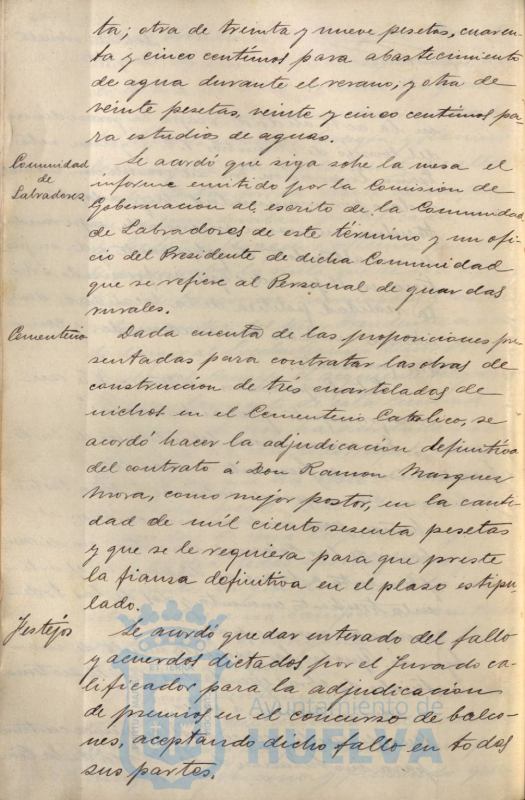 ta; otra de treinta y nueve pesetas, cuaren-
ta y cinco centimos para abastecimiento
de agua durante el verano, y otra de
veinte pesetas, veinte y cinco centimos pa-
ra estudios de aguas.
Comunidad
de
Labradores
Se acordó que siga sobe la mesa el
informe emitido por la Comision de
Gobernacion al escrito de la Comunidad
de Labradores de este término y un ofi-
cio del Presidente de dicha Comunidad
que se refiere al Personal de guardas
rurales.
Cementerio
Dada cuenta de las proposiciones pre
sentadas para contratar las obras de
construccion de trés cuartelados de
nichos en el Cementerio Catolico, se
acordó hacer la adjudicacion definitiva
del contrato á Don Ramon Marquez
Mora, como mejor postor, en la canti-
dad de mil ciento sesenta pesetas
y que se le requiera para que preste
la fianza definitiva en el plazo estipu-
lado.
Festejos
Se acordó quedar enterado del fallo
y acuerdos dictados por el Jurado ca-
lificador para la adjudicacion
de premios en el concurso de balco-
nes, aceptando dicho fallo en todas
sus partes.
Ayuntamiento de
HUELVA